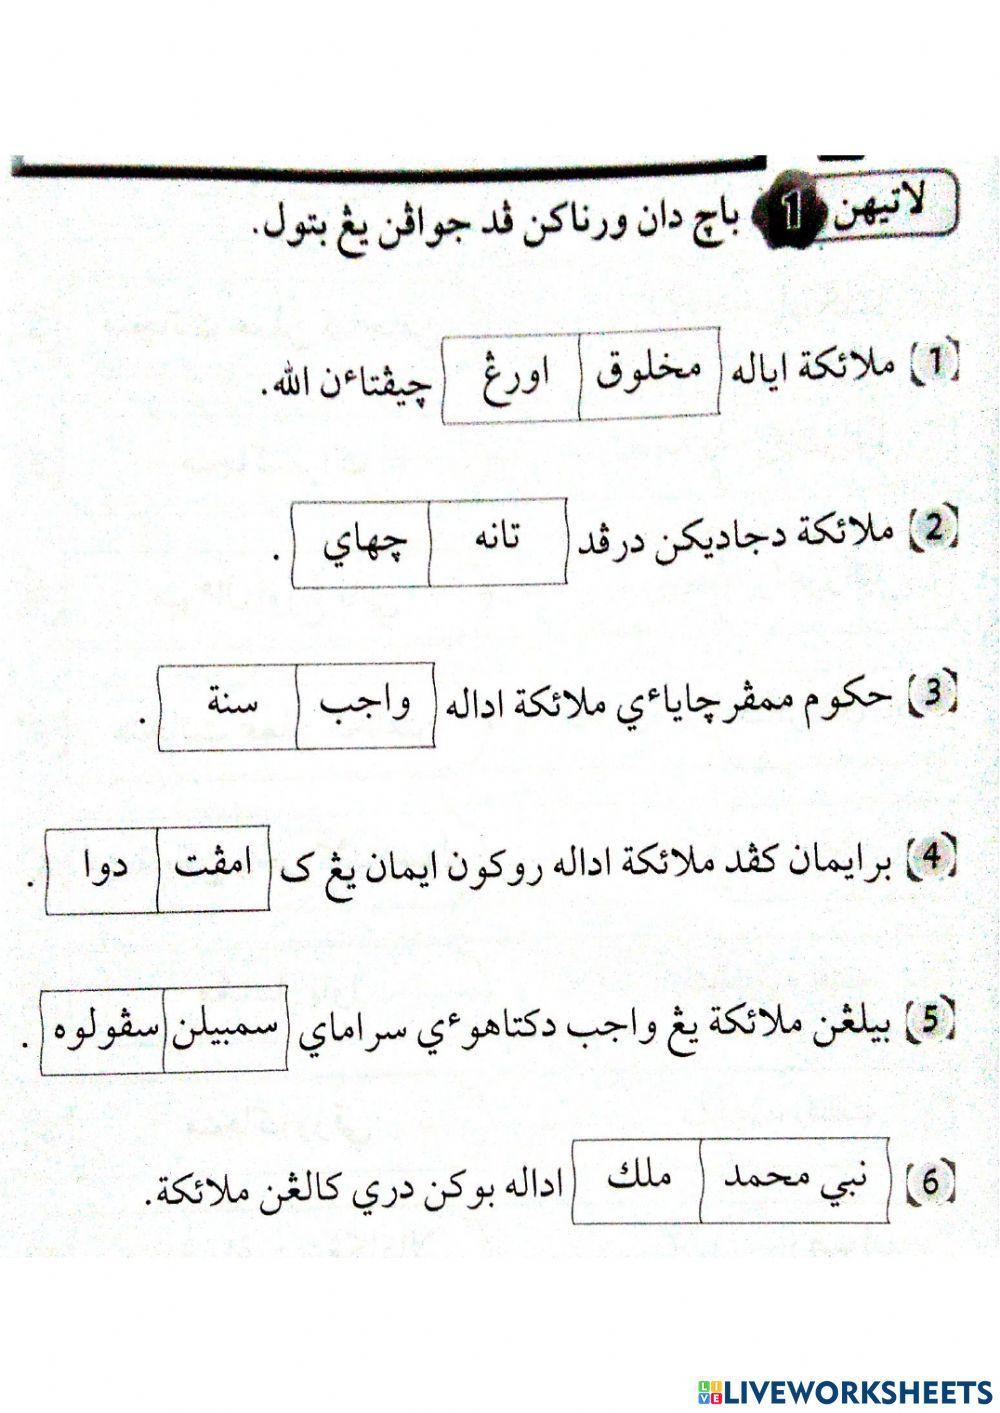 لاتيهن 1 باچ دان ورناکن ڤد جواڤن يڠ بتول.
(1) ملائكة اياله مخلوق اورڠ چيڤتاءن الله.
(2) ملائكة دجاديکن درڤد تانه چهاي .
(3) حکوم ممڤرچاياءي ملائكة اداله واجب سنة .
(4) برايمان کڤد ملائكة اداله روکون ايمان يڠ ک امڤت دوا .
(5) بيلڠن ملائكة يڠ واجب دکتاهوءي سراماي سمبيلن سڤولوه .
(6) نبي محمد ملك اداله بوکن دري کالڠن ملائكة.
LIVEWORKSHEETS